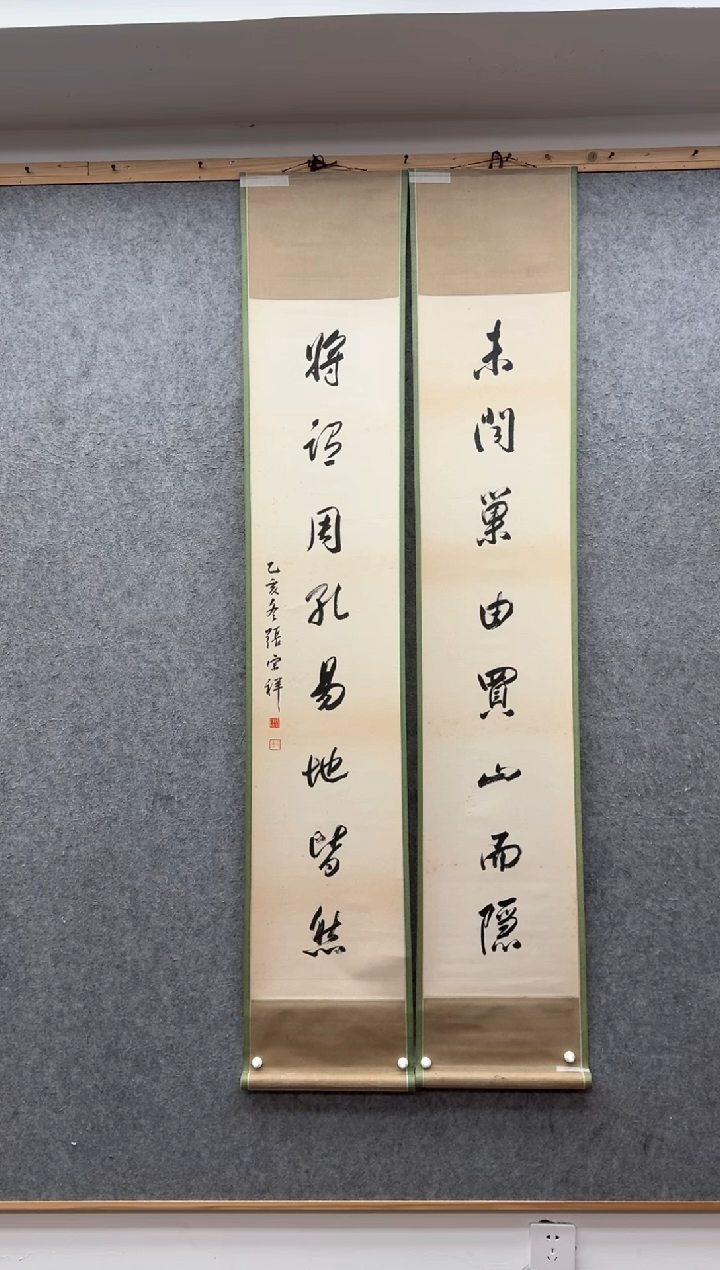 未聞巢由買山而隱
將謂周孔易地皆然
乙亥冬張宗祥